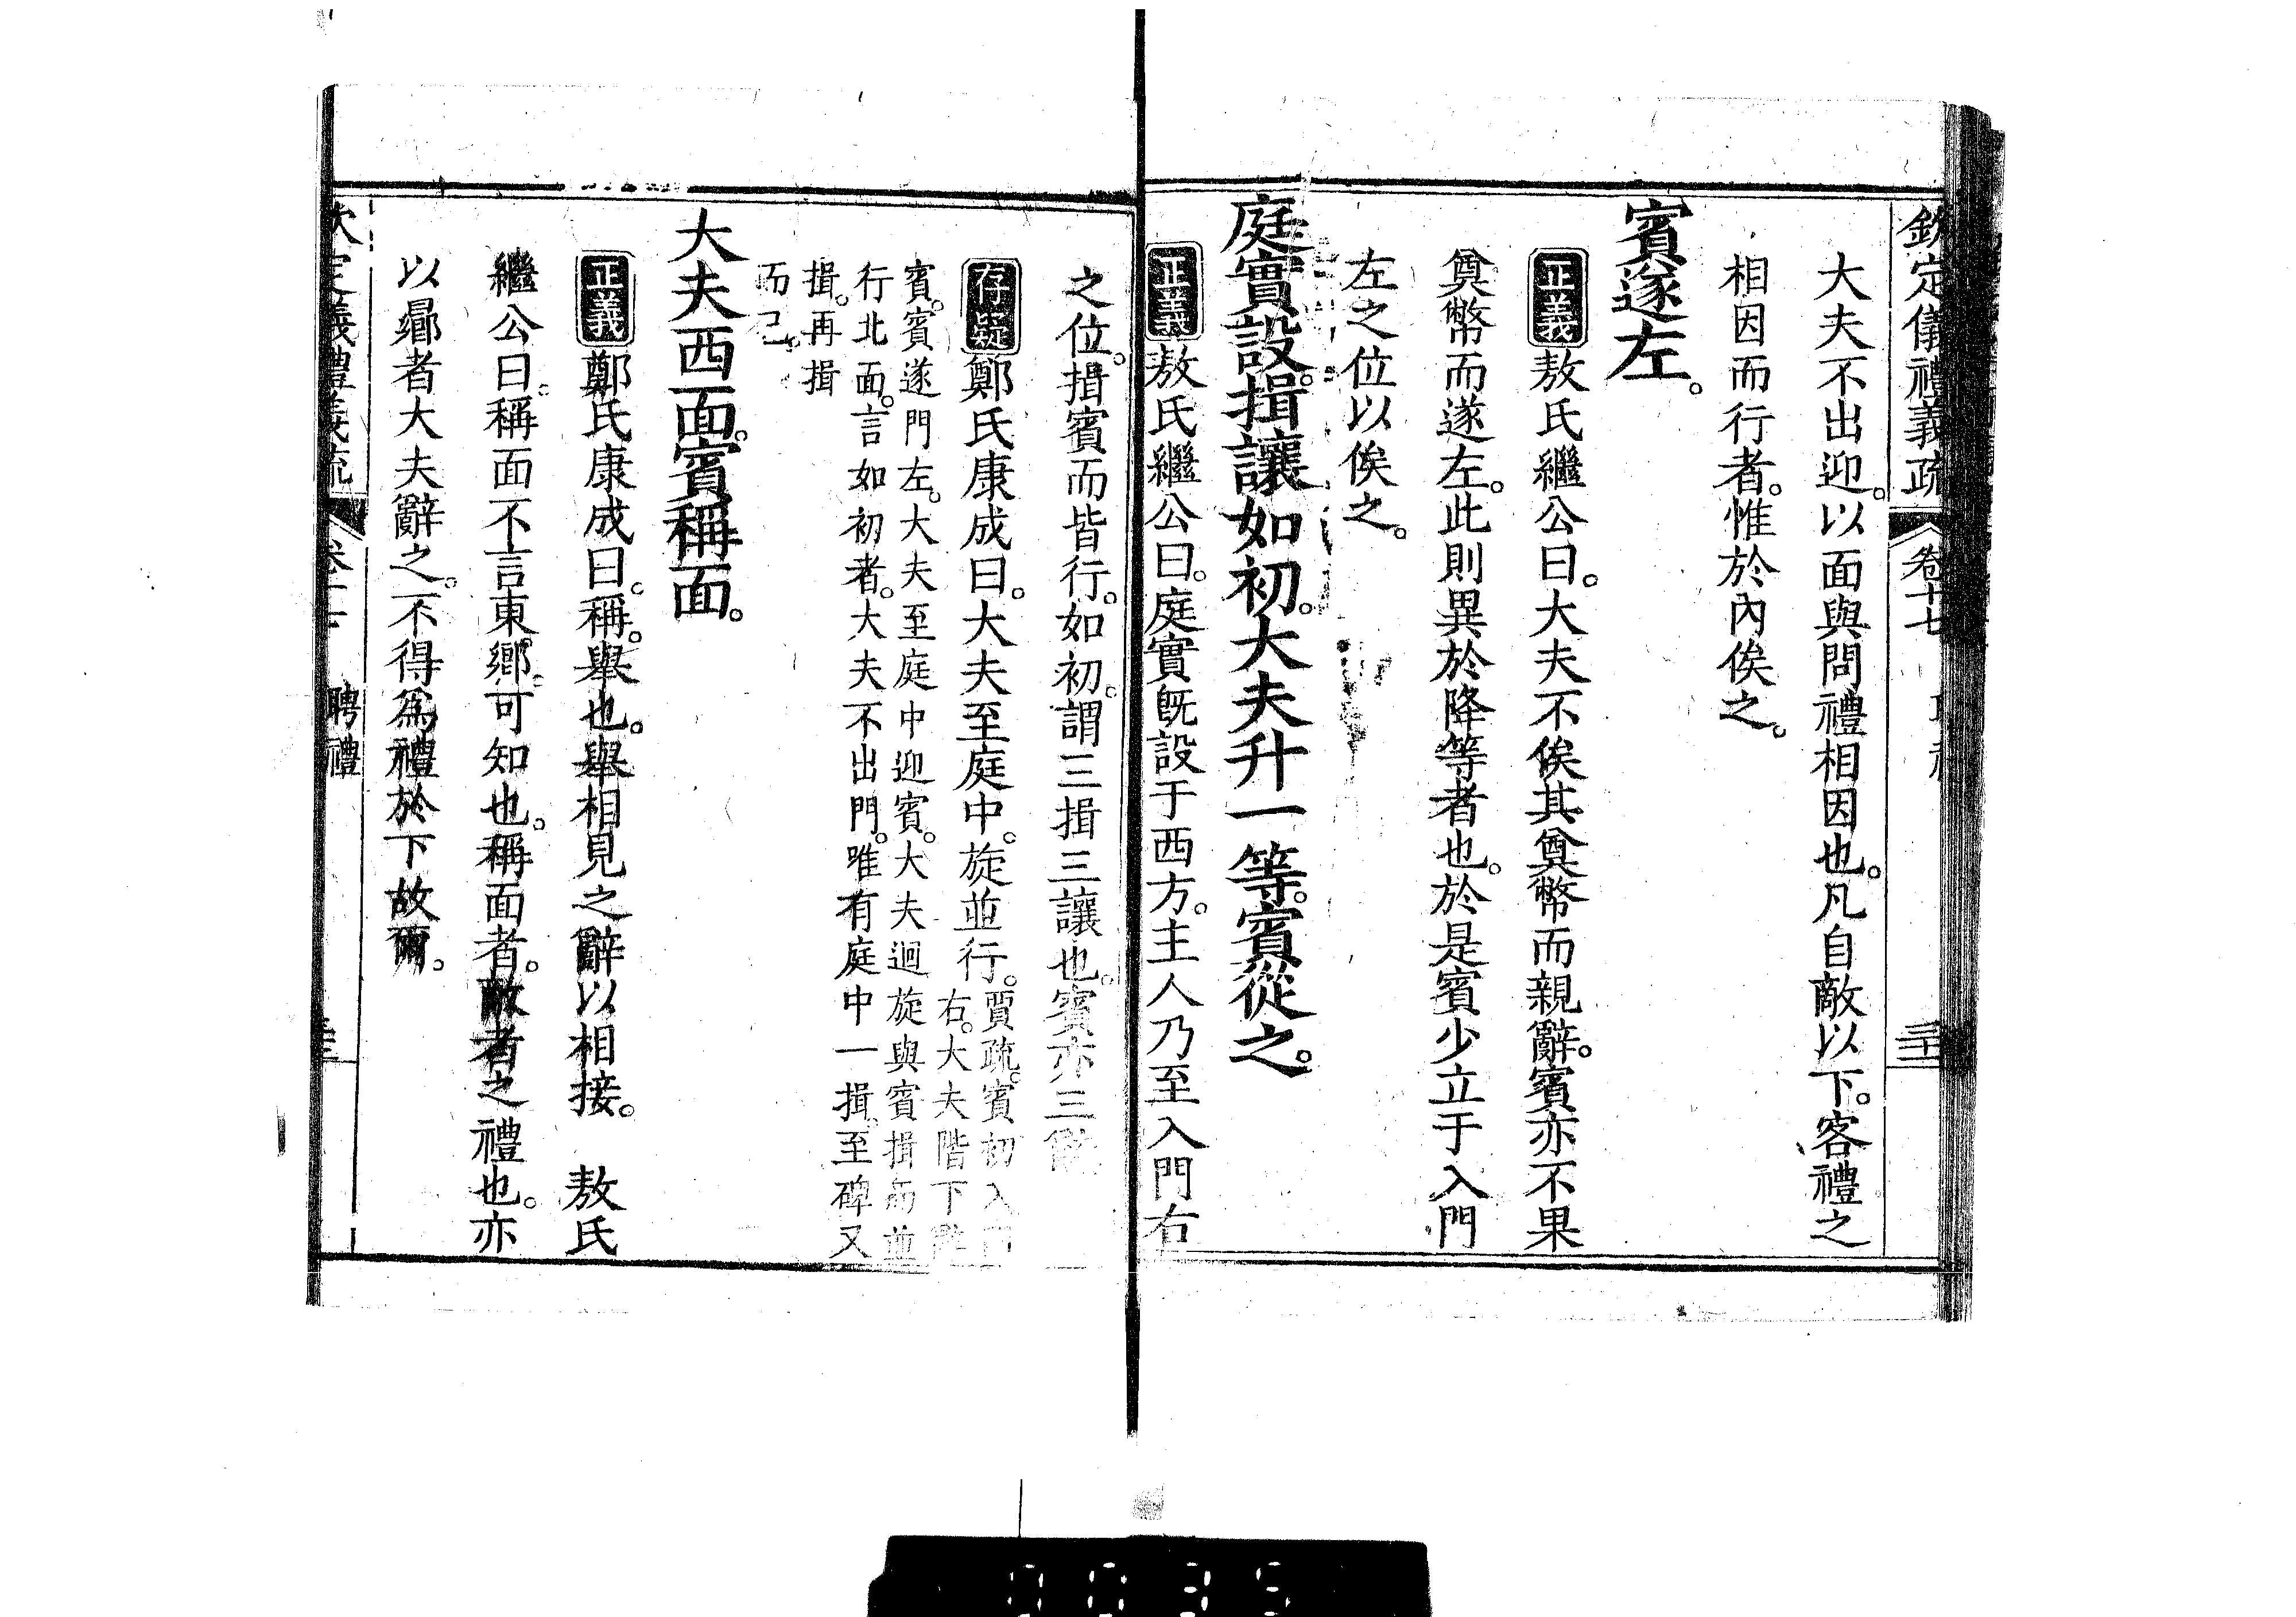 欽定儀禮義疏 卷十七
大夫不出迎。以面與問禮相因也。凡自敵以下。客禮之
相因而行者。惟於內俟之。
賓遂左。
正義 敖氏繼公曰。大夫不俟其奠幣而親辭。賓亦不果
奠幣而遂左。此則異於降等者也。於是賓少立于入門
左之位以俟之。
庭實設。揖讓如初。大夫升一等。賓從之。
正義 敖氏繼公曰。庭實旣設于西方。主人乃至入門右
之位。揖賓而皆行。如初。謂三揖三讓也。賓亦三辭
存疑 鄭氏康成曰。大夫至庭中。旋並行。賈疏。賓初入門
右。大夫階下辭
賓。賓遂門左。大夫至庭中迎賓。大夫迴旋與賓揖而並
行北面。言如初者。大夫不出門。唯有庭中一揖。至碑又
揖。再揖
而已。
大夫西面。賓稱面。
正義 鄭氏康成曰。稱。舉也。舉相見之辭以相接。 敖氏
繼公曰。稱面不言東鄉。可知也。稱面者。敵者之禮也。亦
以曏者大夫辭之。不得爲禮於下故爾。
欽定儀禮義疏 卷十七 聘禮